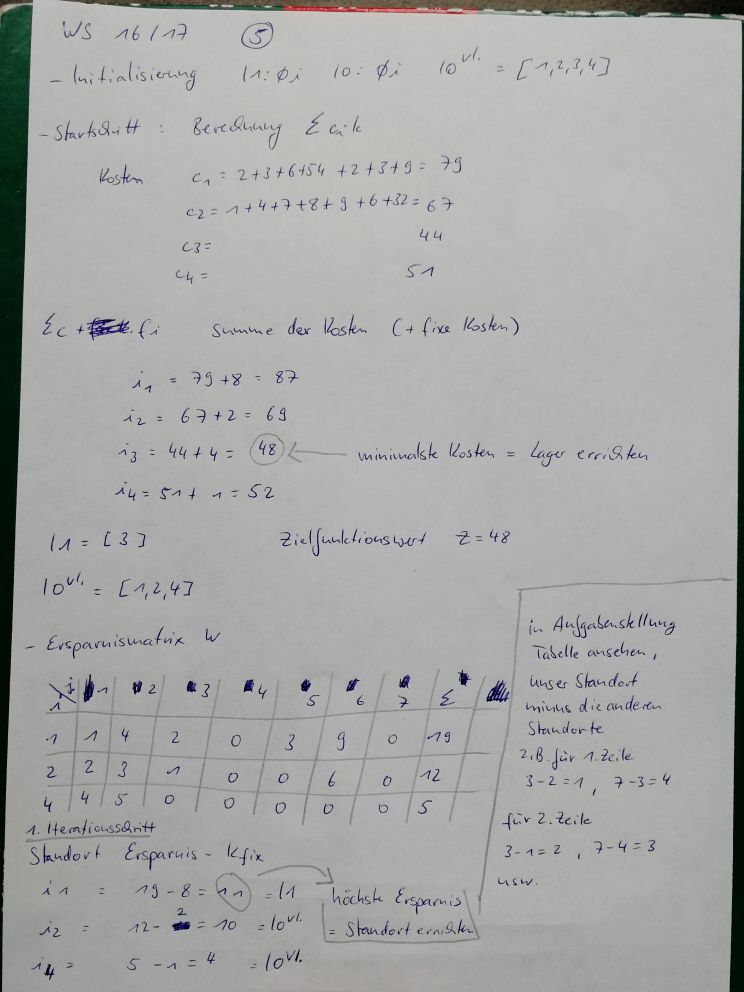 WS 16/17 5
- Initialisierung I1: Øi I0: Øi I0vl. = [1,2,3,4]
- Startschritt : Berechnung Σ cik
Kosten c1 = 2+3+6+54 +2+3+9 = 79
c2 = 1+4+7+8+9+6+32 = 67
c3 = 44
c4 = 51
Σc + fi Summe der Kosten (+ fixe Kosten)
i1 = 79+8 = 87
i2 = 67+2 = 69
i3 = 44+4 = 48 ← minimalste Kosten = Lager errichten
i4 = 51+1 = 52
I1 = [3] Zielfunktionswert Z = 48
I0vl. = [1,2,4]
- Ersparnismatrix W
i j 1 2 3 4 5 6 7 Σ
1 1 4 2 0 3 9 0 19
2 2 3 1 0 0 6 0 12
4 4 5 0 0 0 0 0 5
in Aufgabenstellung
Tabelle ansehen,
unser Standort
minus die anderen
Standorte
z.B. für 1. Zeile
3-2=1 , 7-3=4
für 2. Zeile
3-1=2 , 7-4=3
usw.
1. Iterationsschritt
Standort Ersparnis - Kfix
i1 = 19-8 = 11 = I1
i2 = 12-2 = 10 = I0vl.
i4 = 5-1 = 4 = I0vl.
höchste Ersparnis
= Standort errichten